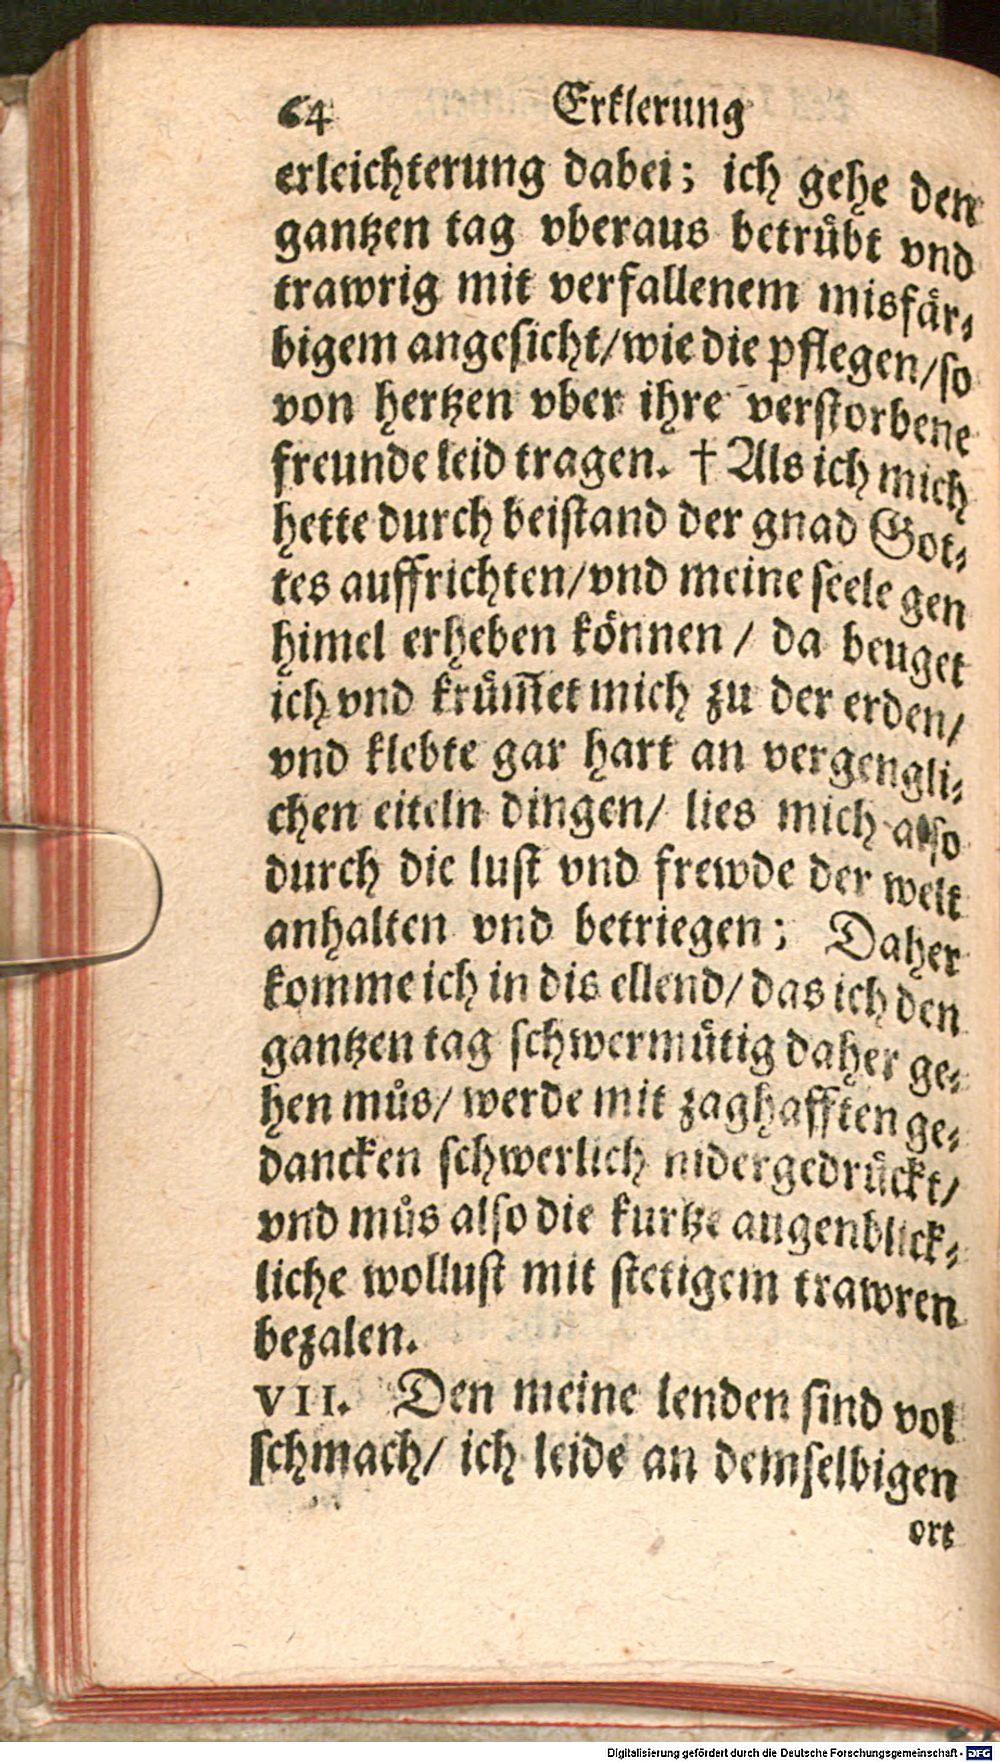 64 Erklerung
erleichterung dabei; ich gehe den
gantzen tag vberaus betruͤbt vnd
trawrig mit verfallenem misfaͤr⸗
bigem angesicht/wie die pflegen/so
von hertzen vber ihre verstorbene
freunde leid tragen. † Als ich mich
hette durch beistand der gnad Got⸗
tes auffrichten/vnd meine seele gen
himel erheben koͤnnen / da beuget
ich vnd kruͤm̃et mich zu der erden/
vnd klebte gar hart an vergengli⸗
chen eiteln dingen/ lies mich also
durch die lust vnd frewde der welt
anhalten vnd betriegen; Daher
komme ich in dis ellend/ das ich den
gantzen tag schwermuͤtig daher ge⸗
hen muͦs/ werde mit zaghafften ge⸗
dancken schwerlich nidergedruͤckt/
vnd muͦs also die kurtze augenblick⸗
liche wollust mit stetigem trawren
bezalen.
VII. Den meine lenden sind vol
schmach/ ich leide an demselbigen
ort
Digitalisierung gefördert durch die Deutsche Forschungsgemeinschaft - DFG